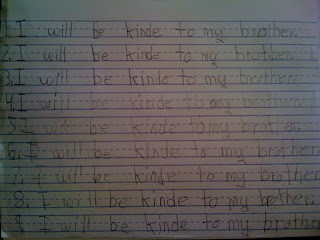 1. I will be kinde to my brother.
2. I will be kinde to my brother.
3. I will be kinde to my brother.
4. I will be kinde to my brother.
5. I will be kinde to my brother.
6. I will be kinde to my brother.
7. I will be kinde to my brother
8. I will be kinde to my bother.
9. I will be kinde to my brother